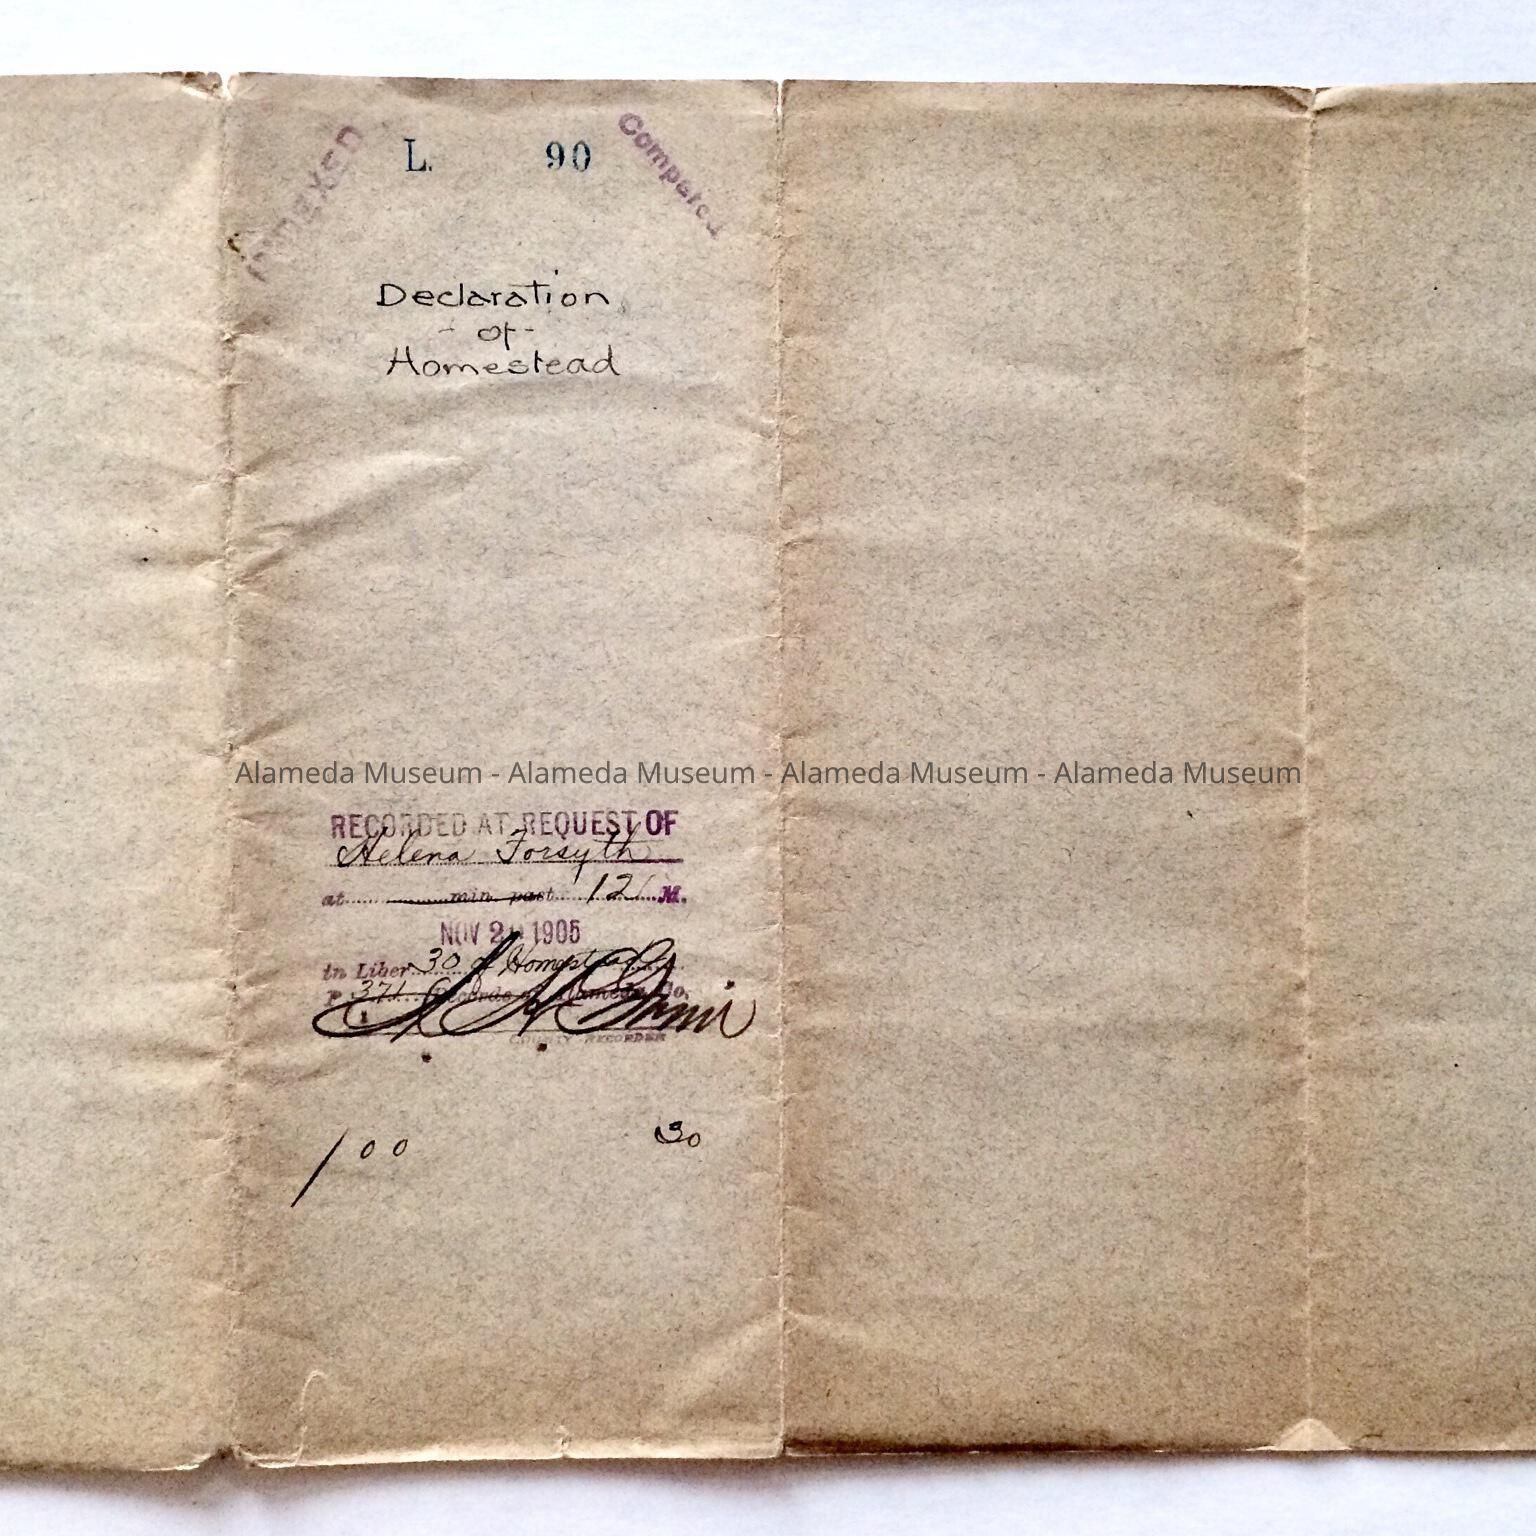 INDEXED
L. 90
Compared
Declaration
- of -
Homestead
Alameda Museum - Alameda Museum - Alameda Museum - Alameda Museum
RECORDED AT REQUEST OF
Helena Forsyth
at min. past 12 M.
NOV 2 1905
in Liber 30 of Homesteads
P 371 Records of Alameda Co.
COUNTY RECORDER
1 00 30